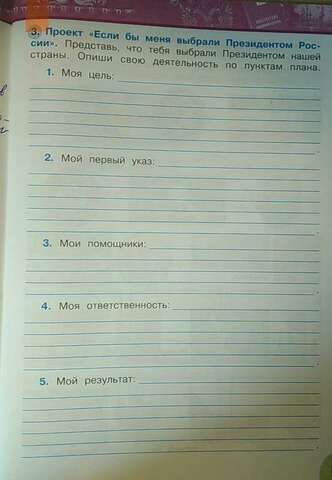 3. Проект «Если бы меня выбрали Президентом Рос-
сии». Представь, что тебя выбрали Президентом нашей
страны. Опиши свою деятельность по пунктам плана.
1. Моя цель:
2. Мой первый указ:
3. Мои помощники:
4. Моя ответственность:
5. Мой результат: